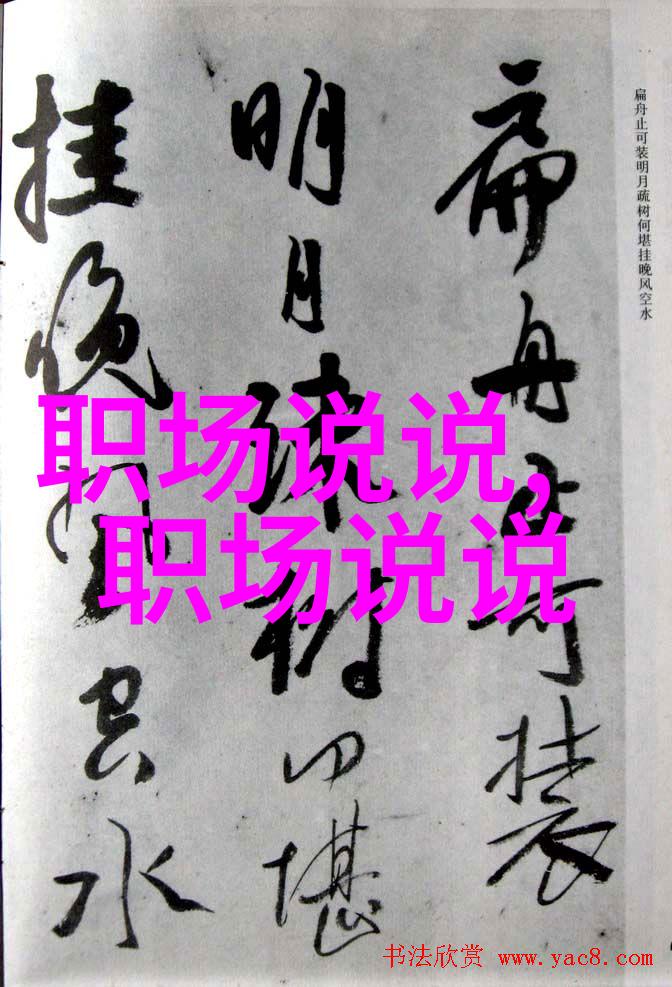 扁舟止可装
明月疏树何堪
挂晚风空水
扁舟止可装明月疏树何堪挂晚风空水
职场说说,
职场说说
书法欣赏 www.yac8.com